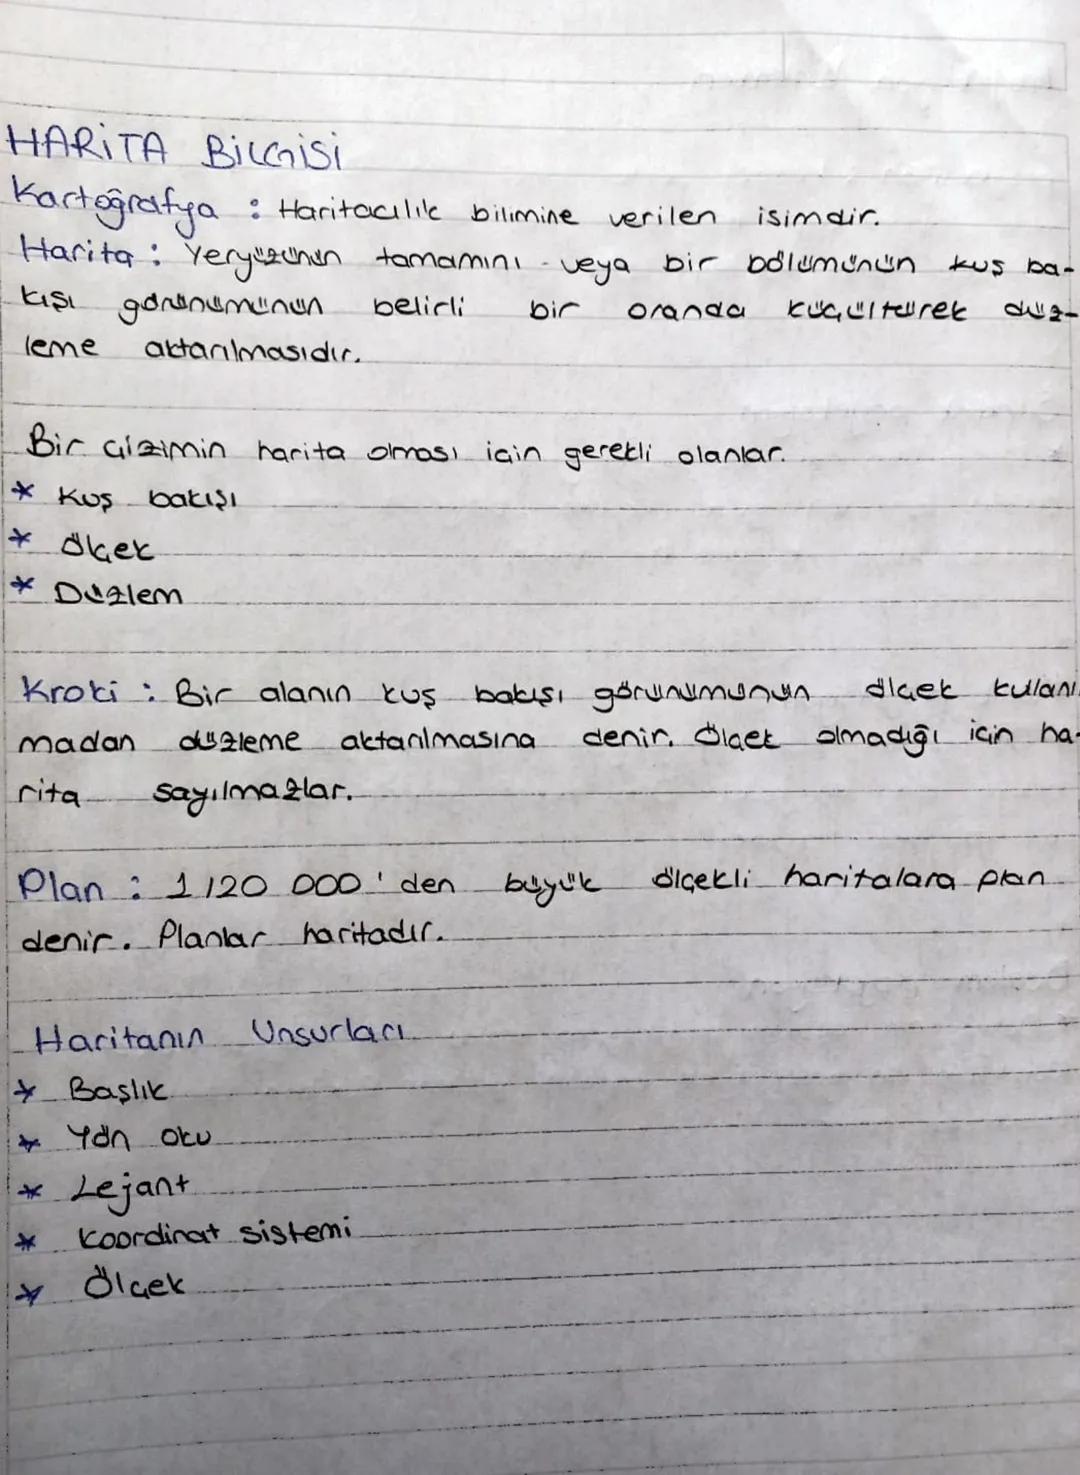 HARİTA BİLGİSİ
Kartoğrafya : Haritacılık bilimine verilen isimdir.
Harita : Yeryüzünün tamamını veya bir bölümünün kuş ba-
kışı görünümünün belirli bir oranda küçültürek düz-
leme aktarılmasıdır.
Bir çizimin harita olması için gerekli olanlar.
* Kuş bakışı
* Ölçek
* Düzlem
Kroki : Bir alanın kuş bakışı görünümünün ölçek kullanıl
madan düzleme aktarılmasına denir. Ölçek olmadığı için ha-
rita sayılmazlar.
Plan : 1/20 000'den büyük ölçekli haritalara plan
denir. Planlar haritadır.
Haritanın Unsurları
* Başlık
* Yön oku
* Lejant
* Koordinat sistemi
* Ölçek